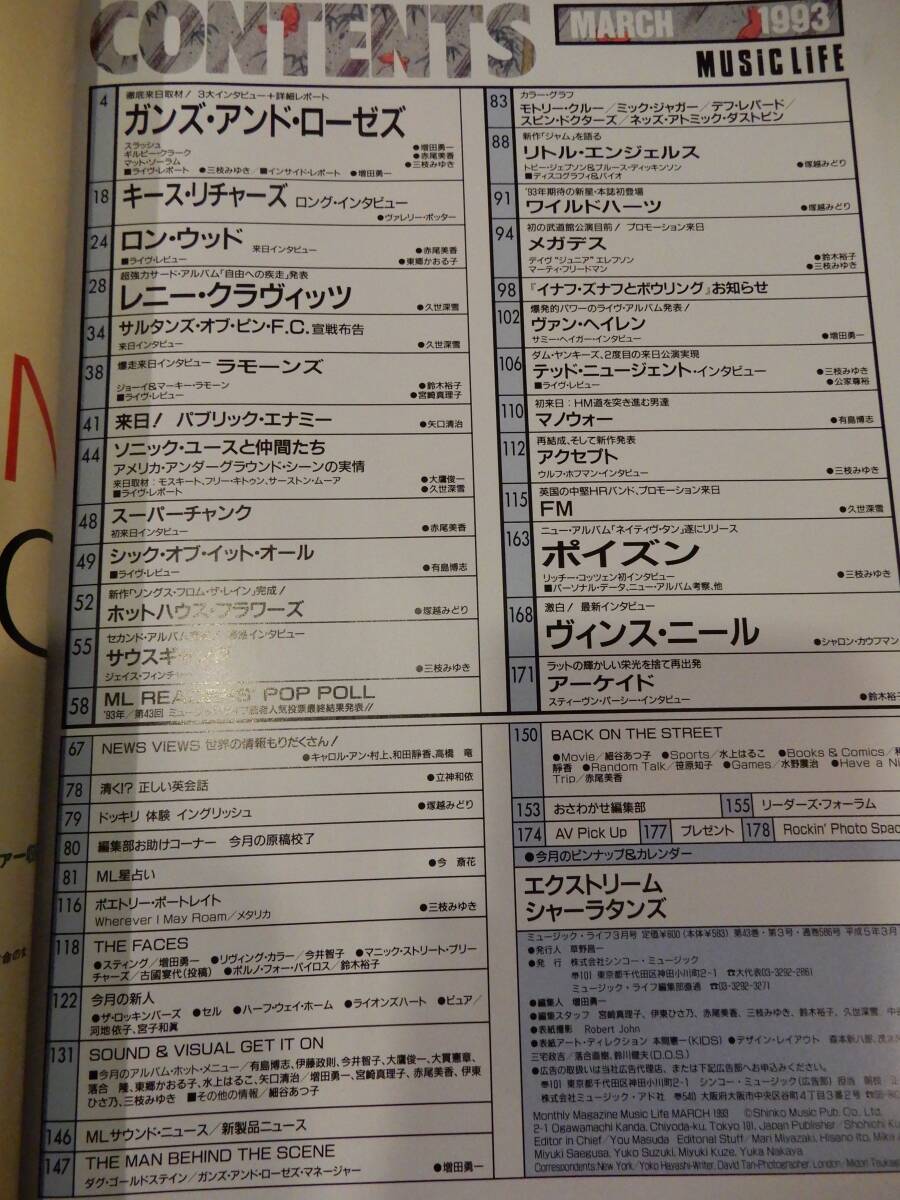 CONTENTS
MARCH 1993
MUSIC LIFE
4
徹底来日取材! 3大インタビュー+詳細レポート
ガンズ・アンド・ローゼズ
スラッシュ ●増田勇一
ギルビー・クラーク ●赤尾美香
マット・ソーラム ●三枝みゆき
■ライヴ・レポート ●三枝みゆき/■インサイド・レポート ●増田勇一
18
キース・リチャーズ ロング・インタビュー
●ヴァレリー・ポッター
24
ロン・ウッド 来日インタビュー ●赤尾美香
■ライヴ・レビュー ●東郷かおる子
28
超強力サード・アルバム「自由への疾走」発表
レニー・クラヴィッツ ●久世深雪
34
サルタンズ・オブ・ピン・F.C. 宣戦布告
来日インタビュー ●久世深雪
38
爆走来日インタビュー ラモーンズ
ジョーイ&マーキー・ラモーン ●鈴木裕子
■ライヴ・レビュー ●宮崎真理子
41
来日! パブリック・エナミー ●矢口清治
44
ソニック・ユースと仲間たち
アメリカ・アンダーグラウンド・シーンの実情
来日取材:モスキート、フリー・キトゥン、サーストン・ムーア ●大鷹俊一
■ライヴ・レポート ●久世深雪
48
スーパーチャンク
初来日インタビュー ●赤尾美香
49
シック・オブ・イット・オール
■ライヴ・レビュー ●有島博志
52
新作「ソングス・フロム・ザ・レイン」完成!
ホットハウス・フラワーズ ●塚越みどり
55
セカンド・アルバム インタビュー
サウスギャング
ジェイス・フィンチャー ●三枝みゆき
58
ML READERS' POP POLL
'93年/第43回 ミュージック・ライフ読者人気投票最終結果発表!!
67
NEWS VIEWS 世界の情報もりだくさん!
●キャロル・アン・村上、和田靜香、高橋 竜
78
清く!? 正しい英会話 ●立神和依
79
ドッキリ 体験 イングリッシュ ●塚越みどり
80
編集部お助けコーナー 今月の原稿校了
81
ML星占い ●今 斎花
116
ポエトリー・ポートレイト
Wherever I May Roam/メタリカ ●三枝みゆき
118
THE FACES
●スティング/増田勇一 ●リヴィング・カラー/今井智子 ●マニック・ストリート・プリー
チャーズ/古國宴代(投稿) ●ポルノ・フォー・パイロス/鈴木裕子
122
今月の新人
●ザ・ロッキンバーズ ●セル ●ハーフ・ウェイ・ホーム ●ライオンズハート ●ピュア/
河地依子、宮子和眞
131
SOUND & VISUAL GET IT ON
■今月のアルバム・ホット・メニュー/有島博志、伊藤政則、今井智子、大鷹俊一、大貫憲章、
落合 隆、東郷かおる子、水上はるこ、矢口清治/増田勇一、宮崎真理子、赤尾美香、伊東
ひさ乃、三枝みゆき ■その他の情報/細谷あつ子
146
MLサウンド・ニュース/新製品ニュース
147
THE MAN BEHIND THE SCENE
ダグ・ゴールドステイン/ガンズ・アンド・ローゼズ・マネージャー ●増田勇一
83
カラー・グラフ
モトリー・クルー/ミック・ジャガー/デフ・レパード/
スピン・ドクターズ/ネッズ・アトミック・ダストビン
88
新作「ジャム」を語る
リトル・エンジェルス
トビー・ジェプソン&ブルース・ディッキンソン ●塚越みどり
■ディスコグラフィ&バイオ
91
'93年期待の新星・本誌初登場
ワイルドハーツ ●塚越みどり
94
初の武道館公演目前! プロモーション来日
メガデス
デイヴ"ジュニア"エレフソン ●鈴木裕子
マーティ・フリードマン ●三枝みゆき
98
『イナフ・ズナフとボウリング』お知らせ
102
爆発的パワーのライヴ・アルバム発表!
ヴァン・ヘイレン
サミー・ヘイガー・インタビュー ●増田勇一
106
ダム・ヤンキーズ、2度目の来日公演実現
テッド・ニュージェント・インタビュー ●三枝みゆき
■ライヴ・レビュー ●公家尊裕
110
初来日:HM道を突き進む男達
マノウォー ●有島博志
112
再結成、そして新作発表
アクセプト
ウルフ・ホフマン・インタビュー ●三枝みゆき
115
英国の中堅HRバンド、プロモーション来日
FM ●久世深雪
163
ニュー・アルバム「ネイティヴ・タン」遂にリリース
ポイズン
リッチー・コッツェン初インタビュー ●三枝みゆき
■パーソナル・データ、ニュー・アルバム考察、他
168
激白! 最新インタビュー
ヴィンス・ニール ●シャロン・カウフマン
171
ラットの輝かしい栄光を捨て再出発
アーケイド
スティーヴン・パーシー・インタビュー ●鈴木裕
150
BACK ON THE STREET
●Movie/細谷あつ子 ●Sports/水上はるこ ●Books & Comics/
靜香 ●Random Talk/笹原知子 ●Games/水野震治 ●Have a Ni
Trip/赤尾美香
153 おさわがせ編集部 155 リーダーズ・フォーラム
174 AV Pick Up 177 プレゼント 178 Rockin' Photo Spac
●今月のピンナップ&カレンダー
エクストリーム
シャーラタンズ
ミュージック・ライフ3月号 定価¥600(本体¥583) 第43巻・第3号・通巻586号 平成5年3月
●発行人 草野昌一
●発 行 株式会社シンコー・ミュージック
〠101 東京都千代田区神田小川町2-1 ☎大代表03-3292-2861
ミュージック・ライフ編集部直通 ☎03-3292-3271
●編集人 増田勇一
●編集スタッフ 宮崎真理子、伊東ひさ乃、赤尾美香、三枝みゆき、鈴木裕子、久世深雪、中
●表紙撮影 Robert John
●表紙アート・ディレクション 本間憲一(KIDS) ●デザイン・レイアウト 森本新八郎、
三宅政吉/落合直樹、鈴川健夫(D.O.S.)
●広告の取扱いは当社広告代理店、または下記広告部へお申込みください。
〠101 東京都千代田区神田小川町2-1 シンコー・ミュージック(広告部)担当
株式会社ミュージック・アド社 〠540 大阪府大阪市中央区谷町4丁目3番2号
Monthly Magazine Music Life MARCH 1993 ©Shinko Music Pub. Co., Ltd.
2-1 Ogawamachi Kanda, Chiyoda-ku, Tokyo 101, Japan Publisher/Shohichi Ku
Editor in Chief/You Masuda Editorial Stuff/Mari Miyazaki, Hisano Ito, Mika A
Miyuki Saegusa, Yuko Suzuki, Miyuki Kuze, Yuka Nakaya
Correspondents: New York/Yoko Hayashi-Writer, David Tan-Photographer. London/Midori Tsukag